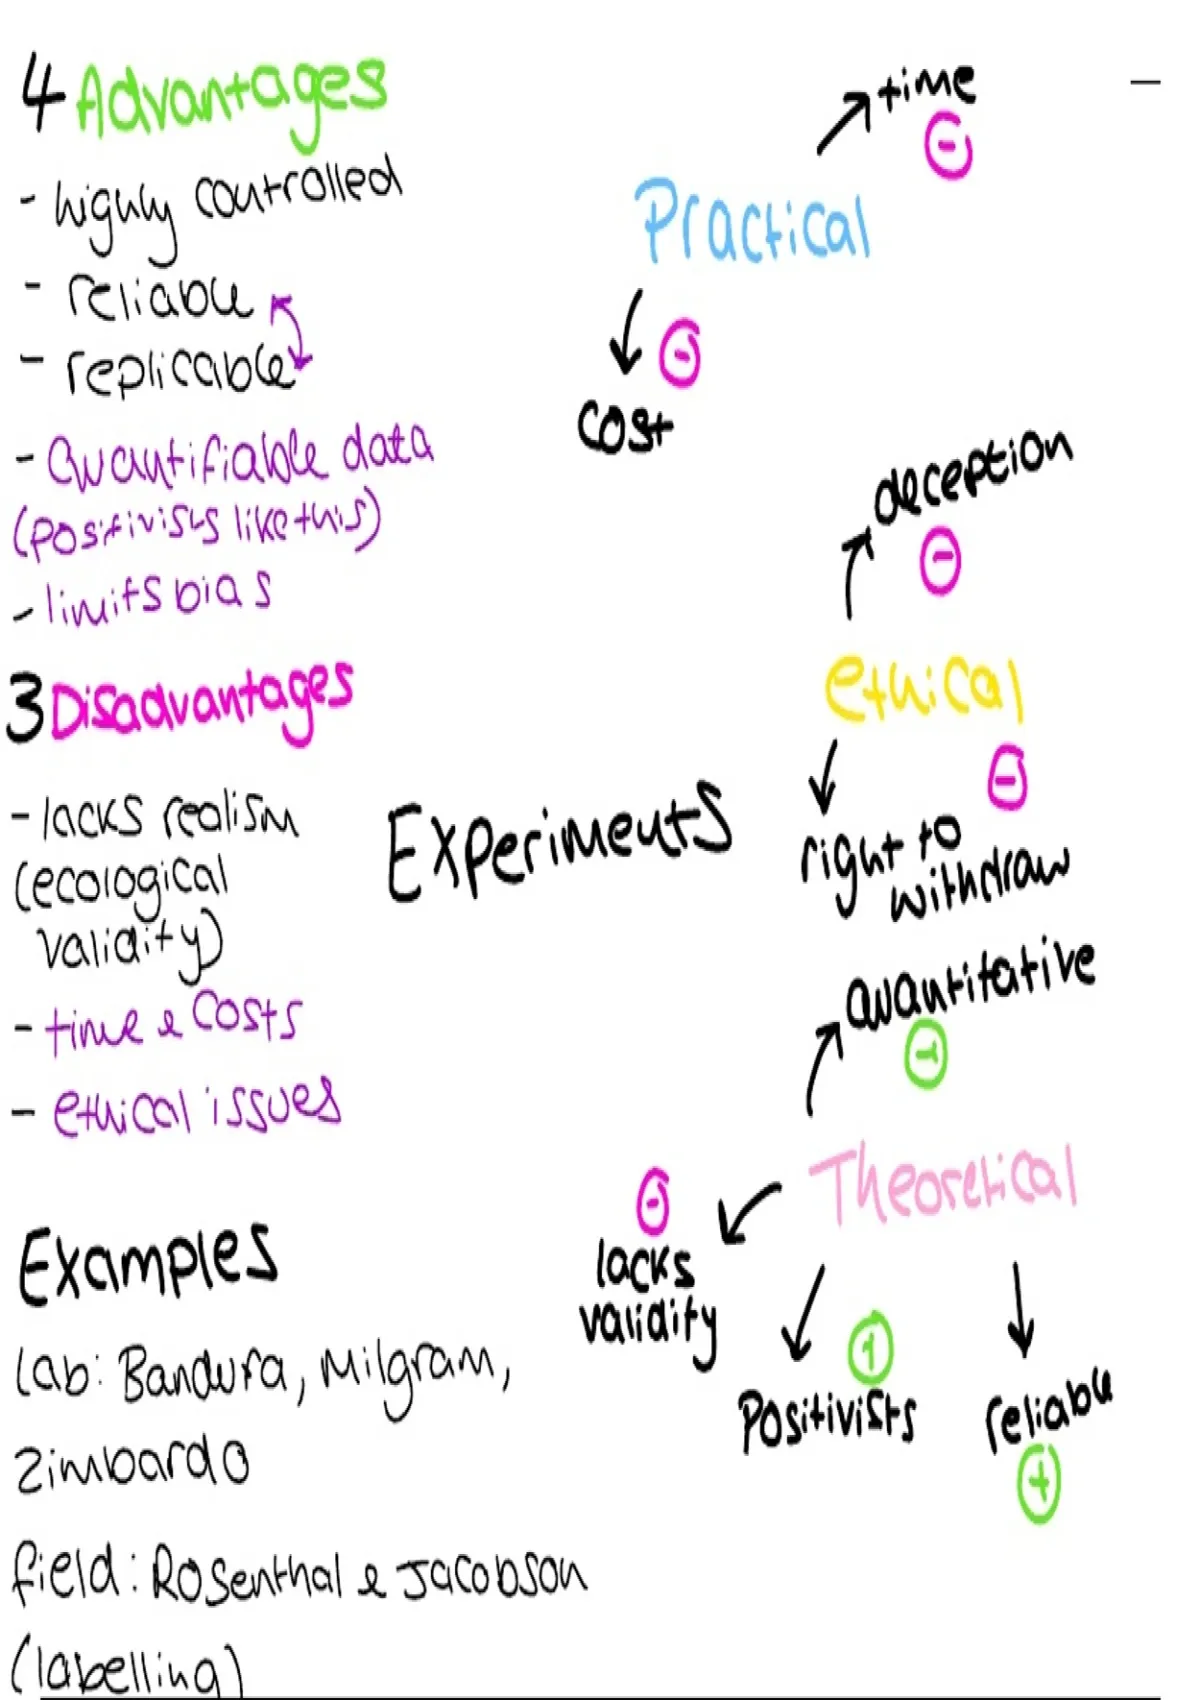 4 Advantages
- highly controlled
- reliable
- replicable
- Quantifiable data
(positivists like this)
- limits bias
3 Disadvantages
- lacks realism
(ecological
validity)
- time & costs
- ethical issues
Examples
lab: Bandura, Milgram,
Zimbardo
field: Rosenthal & Jacobson
(labelling)
Experiments
time
-
Practical
-
cost
deception
-
ethical
-
right to
withdraw
quantitative
+
Theoretical
-
lacks
validity
+
Positivists
reliable
+